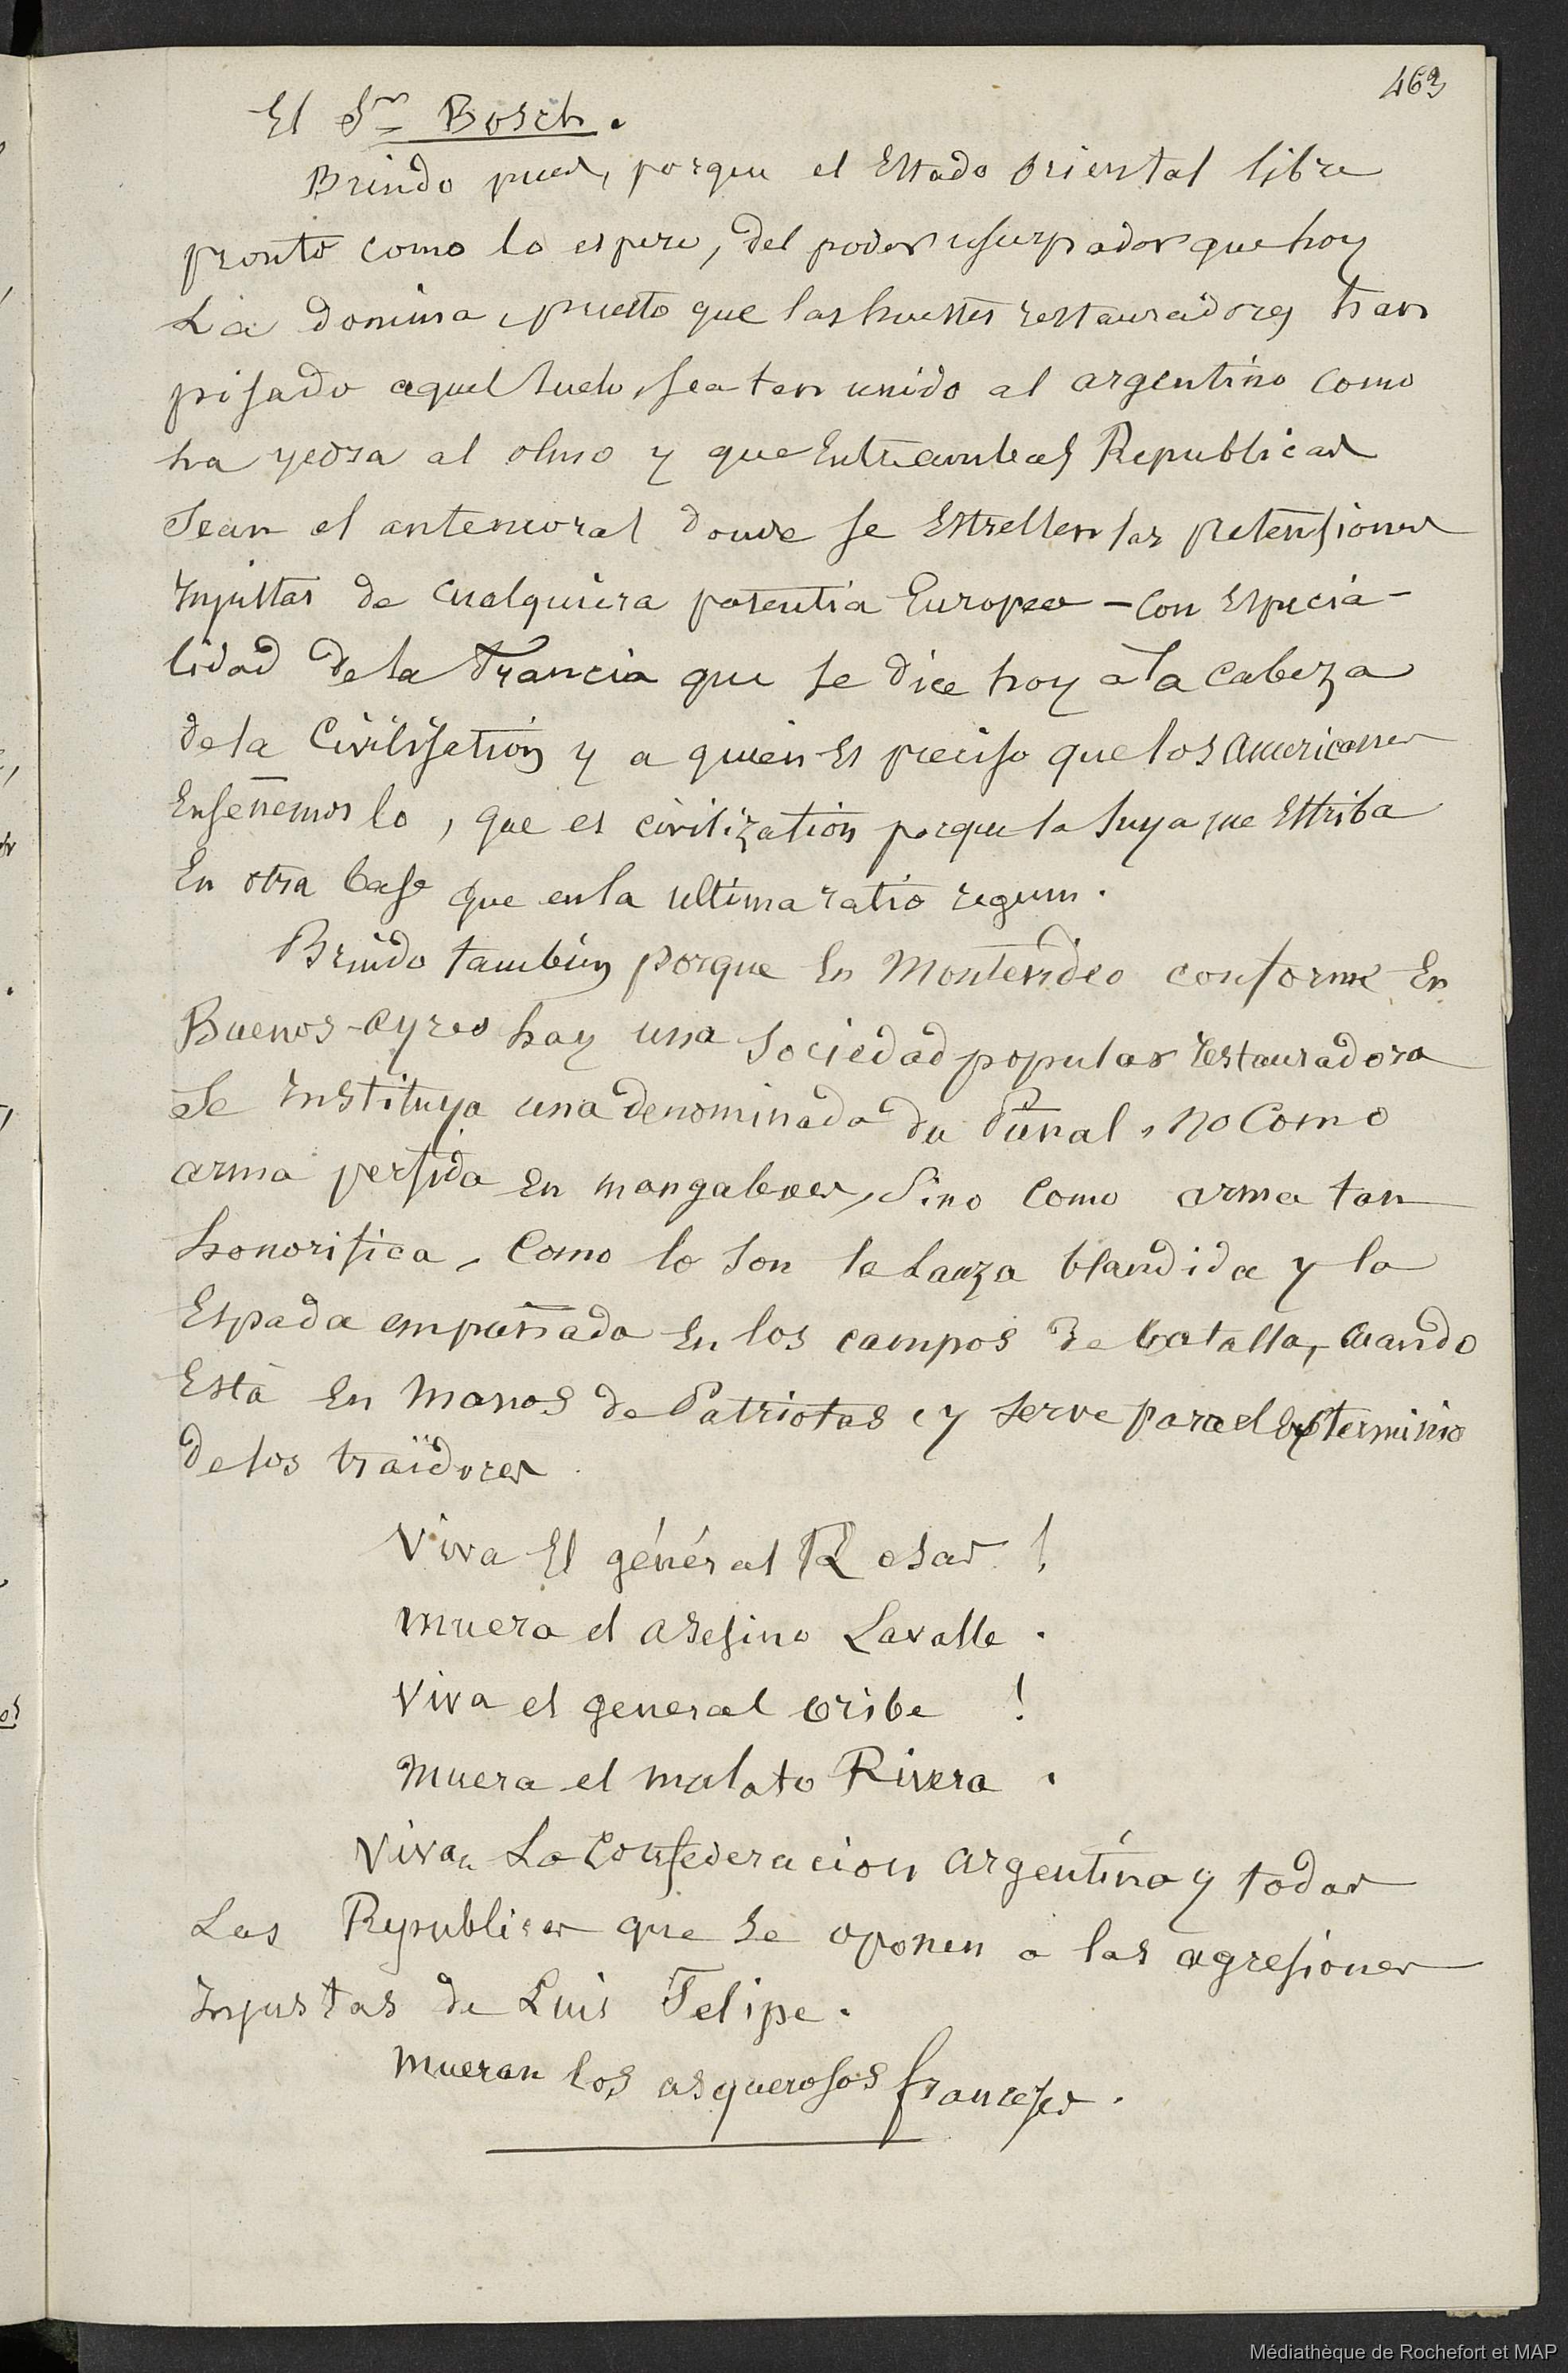 463
El Sr Bosch.
Brindo pues, porque el Estado Oriental libre
pronto como lo espero, del poder usurpador que hoy
La domina, puesto que las huestes restauradores han
pisado aquel suelo, sea tan unido al argentino como
ha yedra al olmo y que Entreambas Republicas
Sean el antemoral donde se Estrellen las pretensiones
Injustas de cualquiera potentia Europea - con Especia-
lidad de la Francia que se dice hoy a la cabeza
de la Civilisation y a quien Es preciso que los americanos
Enseñemos lo, que es civilization porque la suya que Estriba
En otra base que en la ultima ratio regum.
Brindo tambien porque En Montevideo conforme En
Buenos-ayres hay una Sociedad popular restauradora
Se Instituya una denominada du Puñal, no Como
arma perfida En sino como arma tan
honorifica, Como lo son la Lanza blandida y la
Espada empuñada En los campos de batalla, cuando
Està En manos de Patriotas, y serve para el Exterminio
de los traïdores
Viva El général Rosas !
muera el asesino Lavalle.
Viva el general Oribe !
Muera el mulato Rivera.
Vivan La Confederacion argentina y todas
Las Republicas que se oponen a las agresiones
Injustas de Luis Felipe.
Mueran los asquerosos franceses.
Médiathèque de Rochefort et MAP